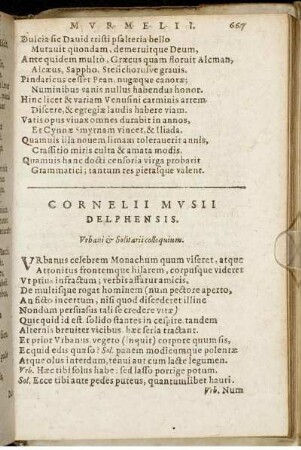 MVRMELII. 667
Dulcia sic Dauid tristi psalteria bello
Mutauit quondam, demeruitque Deum,
Ante quidem multò, Græcus quam floruit Alcman,
Alcæus, Sappho, Stersichorusve grauis.
Pindaricus cesset Pean, nugæque canoræ;
Numinibus vanis nullus habendus honor.
Hinc licet & variam Venusini carminis artem
Discere, & egregiæ laudis habere viam.
Vatis opus viuax omnes durabit in annos,
Et Cynnæ Smyrnam vincet, & Iliada.
Quamuis illa nouem limam tolerauerit annis,
Crassitio mirè culta & amata modis.
Quamuis hanc docti censoria virga probarit
Grammatici; tantum res pietasque valent.
CORNELII MVSII
DELPHENSIS.
Vrbani & Solitarii colloquium.
VRbanus celebrem Monachum quum viseret, atque
Attonitus frontemque hilarem, corpusque videret
Vt prius infractum; verbis affatur amicis,
De multisque rogat hominem (num pectore aperto,
An ficto incertum, nisi quod discederet illinc
Nondum persuasus tali se credere vitæ)
Quicquid id est. solido stantes in cespite, tandem
Alternis breuiter vicibus hæc seria tractant.
Et prior Vrbanus, vegeto (inquit) corpore quum sis,
Ecquid edis quæso? Sol. panem modicumque polentæ
Atque olus interdum, tenui aut cum lacte legumen.
Vrb. Hæc tibi solus habe: sed lasso porrige potum.
Sol. Ecce tibi ante pedes puteus, quantumlibet hauri.
Vrb. Num